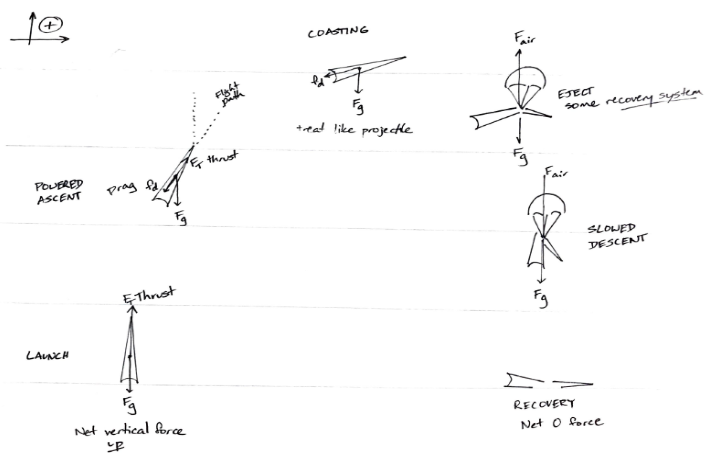 +
COASTING
fd
Fg
treat like projectile
Fair
EJECT
some recovery system
Fg
Flight
path
FT thrust
POWERED
ASCENT
Drag fd
Fg
Fair
SLOWED
DESCENT
Fg
FT Thrust
LAUNCH
Fg
Net vertical force
UP
RECOVERY
Net 0 force